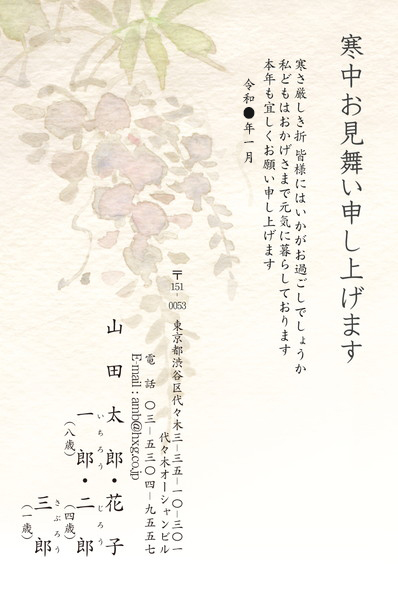 寒中お見舞い申し上げます
寒さ厳しき折 皆様にはいかがお過ごしでしょうか
私どもはおかげさまで元気に暮らしております
本年も宜しくお願い申し上げます
令和●年一月
〒151-0053
東京都渋谷区代々木三−三五−一〇−三〇一
代々木オーシャンビル
電話 〇三−五三〇四−九五五七
E-mail : amb@hxg.co.jp
山田太郎・花子
いちろう じろう
一郎・二郎
(八歳) (四歳)
さぶろう
三郎
(一歳)